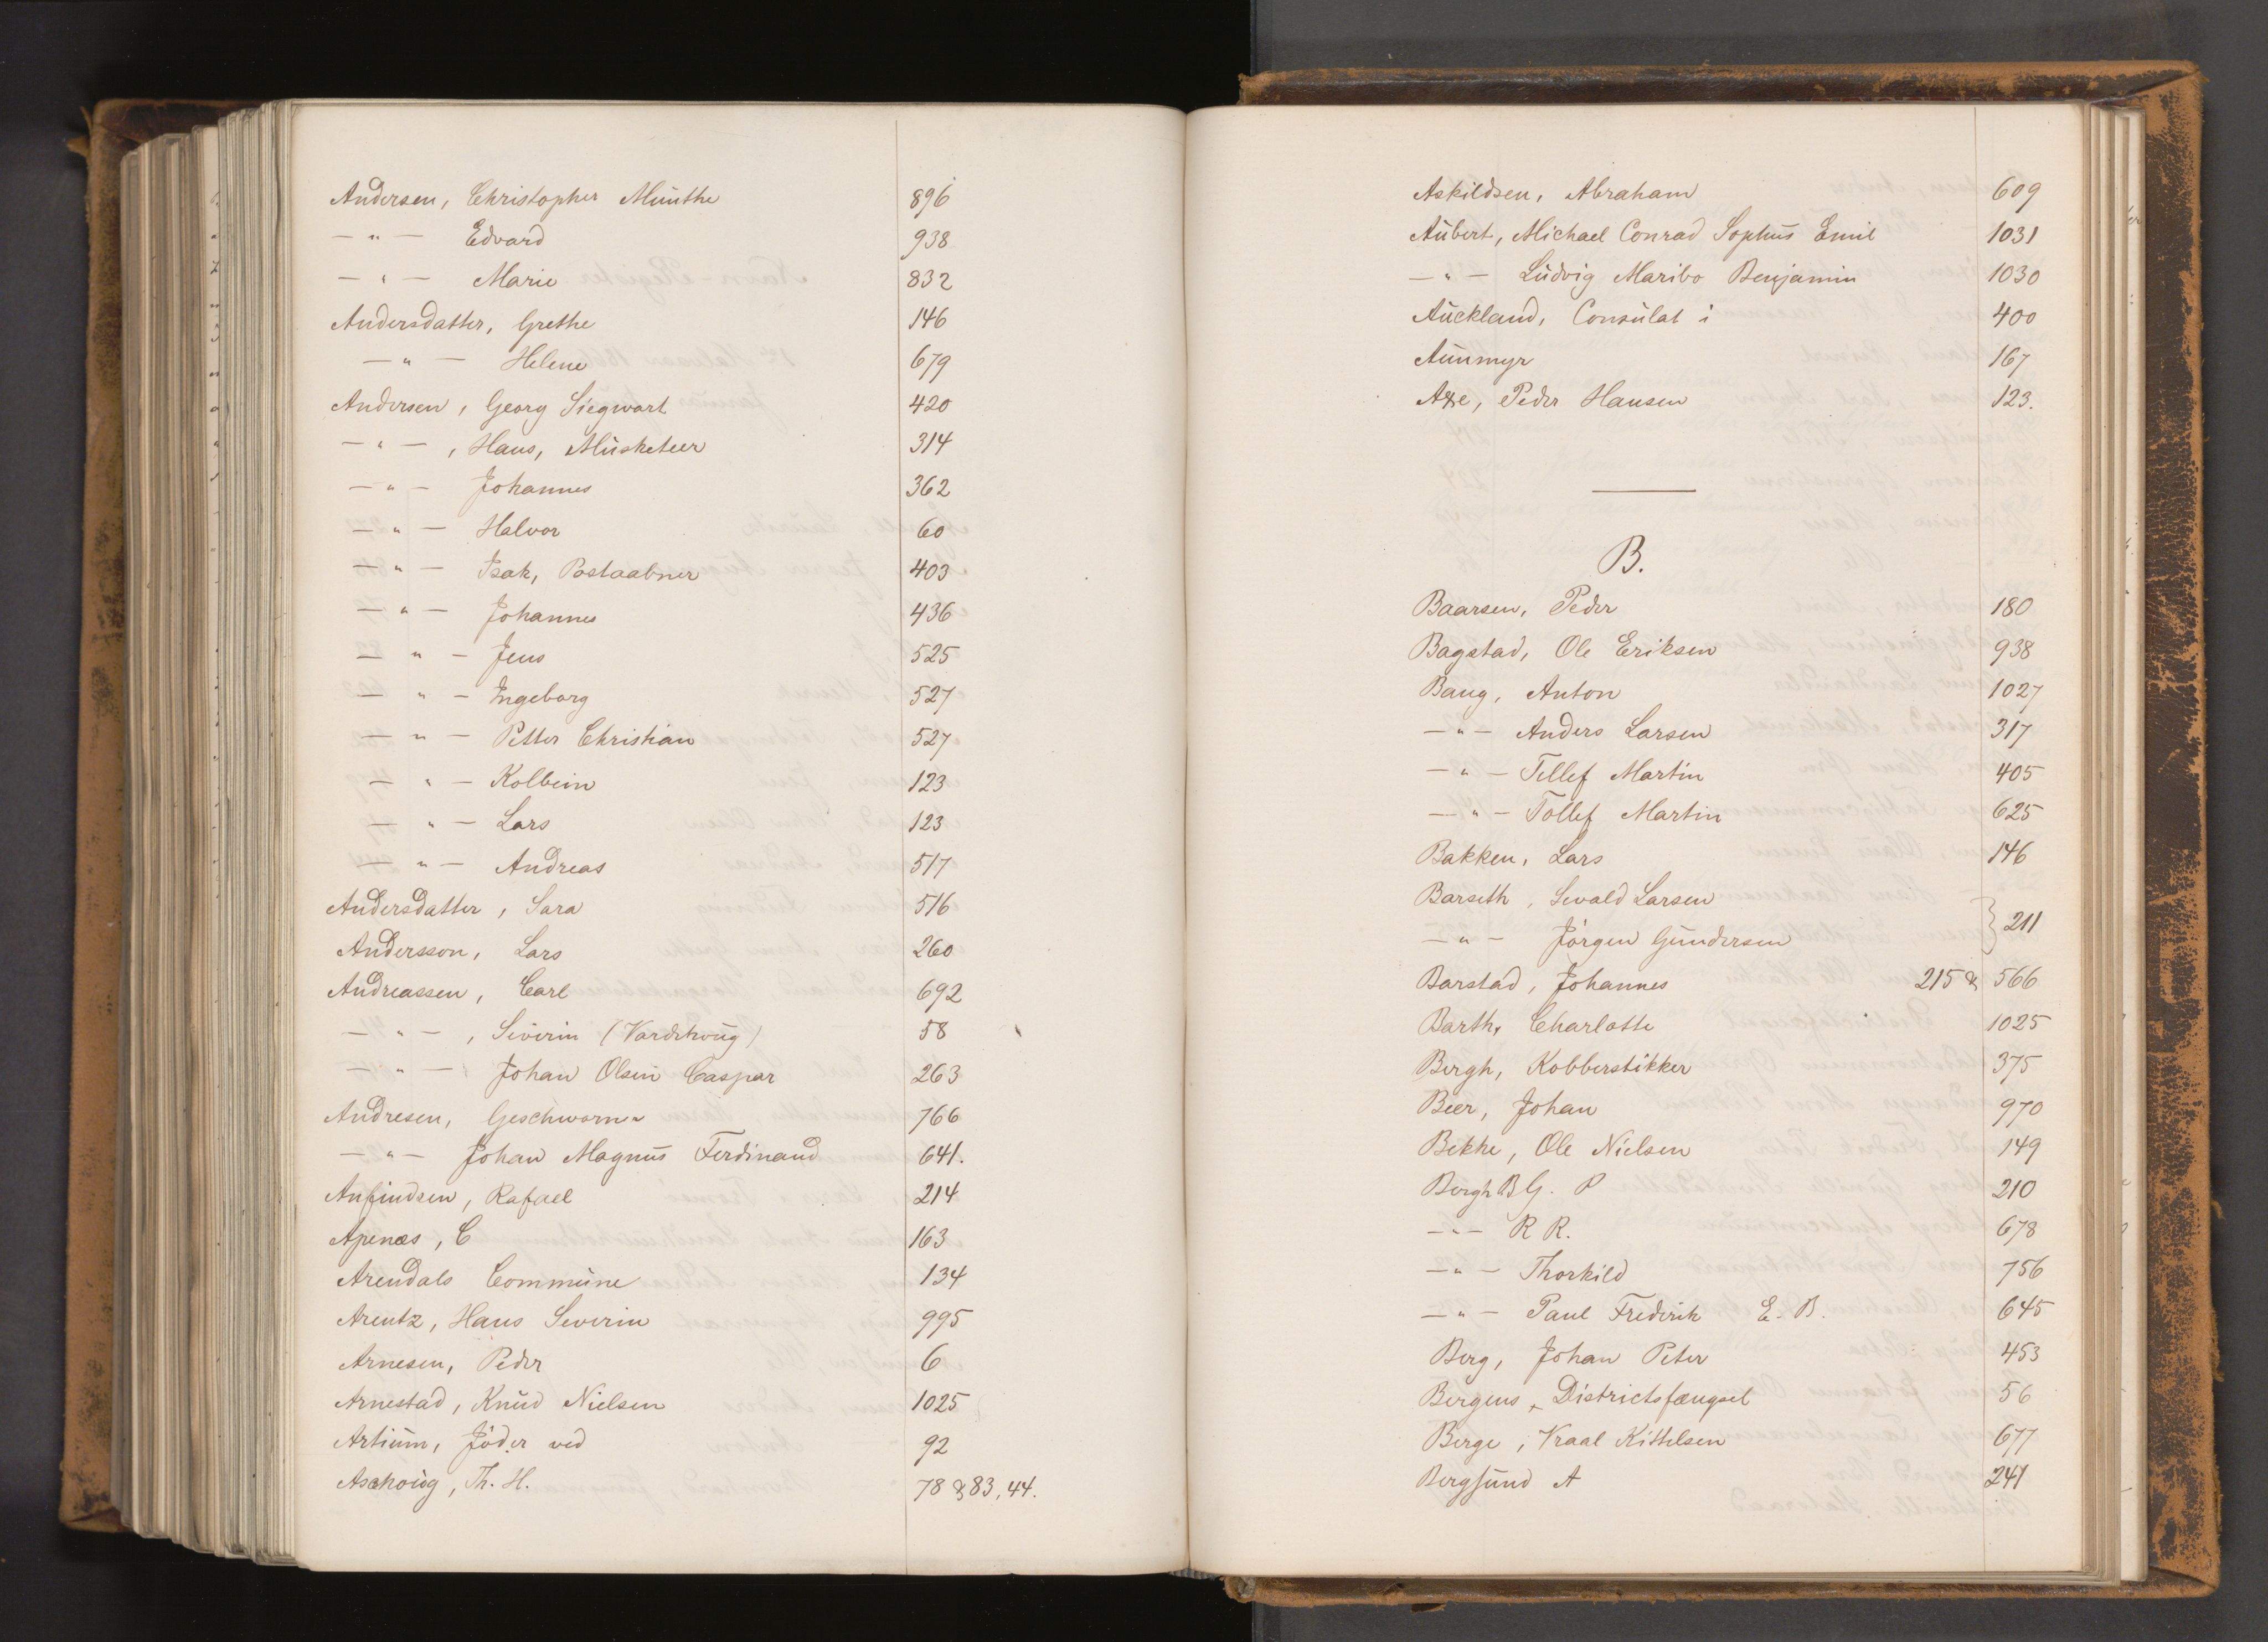 Andersen, Christopher Munthe 896
—"— Edvard 938
—"— Marie 832
Andersdatter, Grethe 146
—"— Helene 679
Andersen, Georg Siegwart 420
—"—, Hans, Musketeer 314
—"— Johannes 362
—"— Halvor 60
—"— Isak, Postaabner 403
—"— Johannes 436
—"— Jens 525
—"— Ingeborg 527
—"— Petter Christian 527
—"— Kolbein 123
—"— Lars 123
—"— Andreas 517
Andersdatter, Sara 516
Andersson, Lars 260
Andreassen, Carl 692
—"—, Severin (Vardehoug) 58
—"— Johan Olsen Caspar 263
Andresen, Geschworne 766
—"— Johan Magnus Ferdinand 641.
Anfindsen, Rafael 214
Apenæs, C 163
Arendals Commune 134
Arentz, Hans Severin 995
Arnesen, Peder 6
Arnestad, Knud Nielsen 1025
Artium, Jøder ved 92
Aschoug, Th. H. 78 & 83, 44.
Askildsen, Abraham 609
Aubert, Michael Conrad Sophus Emil 1031
—"— Ludvig Maribo Benjamin 1030
Auckland, Consulat i 400
Aunmyr 167
Axe, Peder Hansen 123.
B.
Baarsen, Peder 180
Bagstad, Ole Eriksen 938
Bang, Anton 1027
—"— Anders Larsen 317
—"— Tellef Martin 405
—"— Tollef Martin 625
Bakken, Lars 146
Barseth, Sevald Larsen
—"— Jørgen Gundersen } 211
Barstad, Johannes 215 & 566
Barth, Charlotte 1025
Bergh, Kobberstikker 375
Beer, Johan 970
Bekke, Ole Nielsen 149
Bergh B G. P 210
—"— R R. 678
—"— Thorkild 756
—"— Paul Frederik E. B. 645
Berg, Johan Peter 453
Bergens Districtsfængsel 56
Berge, Vraal Kittelsen 677
Bergsund A 241